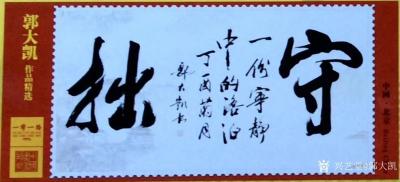 郭大凯
作品精选
一带一路
守拙
一份宁静
中的淡泊
丁酉菊月
郭大凯书
中国·北京
兴艺堂@郭大凯